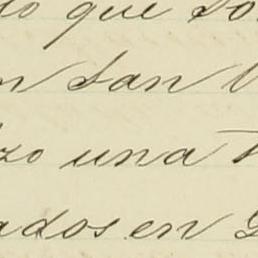 do que so
n San V
zo una t
ados en G